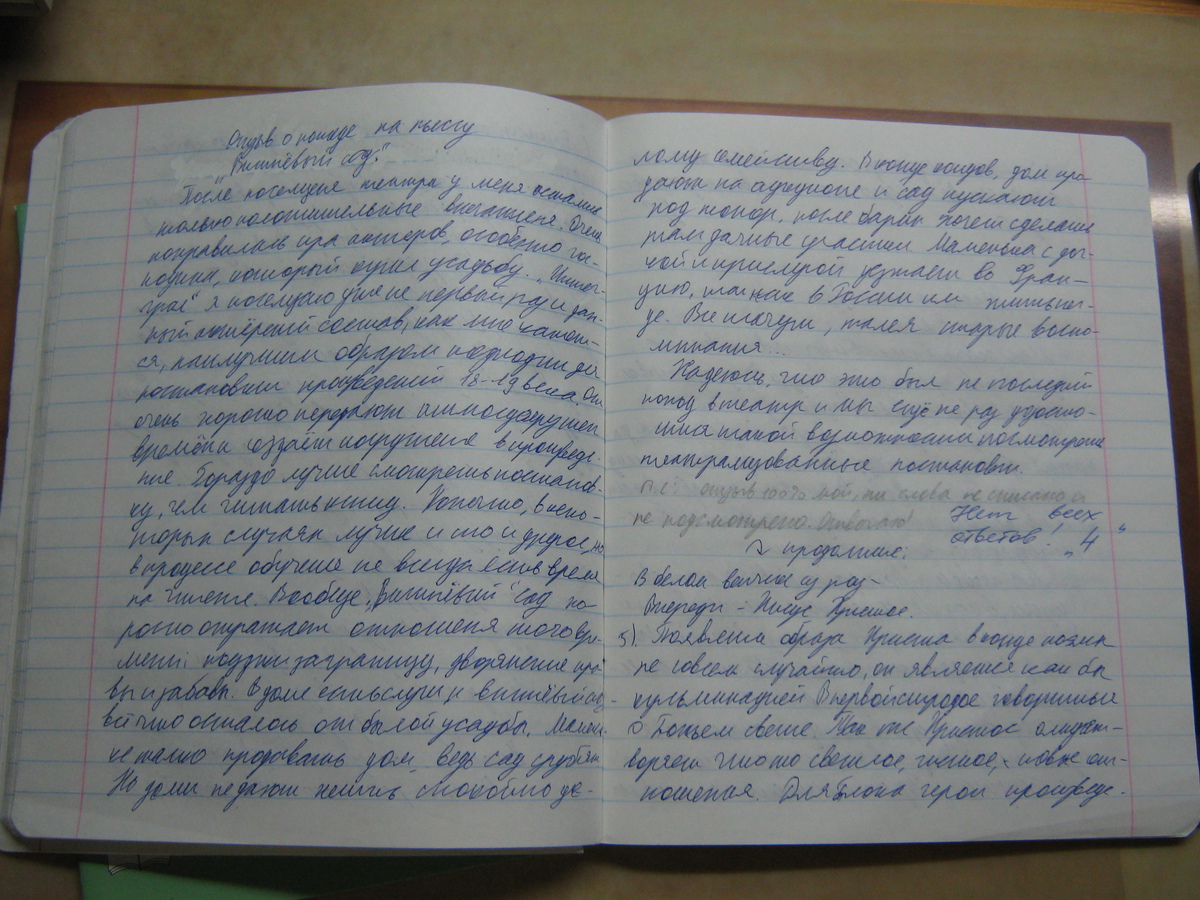 Отзыв о походе на пьесу
„Вишнёвый сад".
После посещения театра у меня остались
только положительные впечатления. Очень
понравилась игра актёров, особенно гос-
подина, который купил усадьбу.
я посещаю уже не первый раз и дан-
ный актёрский состав, как мне кажет-
ся, наилучшим образом подходит для
постановки произведений 18-19 века. Они
очень хорошо передают атмосферу тех
времён и создают погружение в произведе-
ние. Гораздо лучше смотреть постанов-
ку, чем читать книгу. Конечно, в неко-
торых случаях лучше и то и другое, но
в процессе обучения не всегда есть время
на чтение. Вообще, „Вишнёвый сад" хо-
рошо отражает отношения того вре-
мени: поездки заграницу, дворянские нра-
вы и забавы. В доме есть слуги, и вишнёвый сад -
всё что осталось от былой усадьбы. Мамень-
ке жалко продавать дом, ведь сад срубят.
Но долги не дают жить спокойно це-
лому семейству. В конце концов, дом про-
дают на аукционе и сад пускают
под топор, после барин хочет сделать
там дачные участки. Маменька с доч-
кой и прислугой уезжает во Фран-
цию, так как в России им жить не-
где. Все плачут, жалея старые воспо-
минания...
Надеюсь, что это был не последний
поход в театр и мы ещё не раз удосто-
имся такой возможности посмотреть
театрализованные постановки.
П.С. отзыв 100% мой, ни слова не списано и
не подсмотрено. Отвечаю!
Нет всех
ответов! „4"
продолжение:
В белом венчике из роз -
Впереди - Иисус Христос.
5). Появление образа Христа в конце поэмы
не совсем случайно, он является как бы
кульминацией. В первой строфе говориться
о Божьем свете. Так же Христос олицет-
воряет что-то светлое, чистое, новые от-
ношения. Для Блока герои произведе-